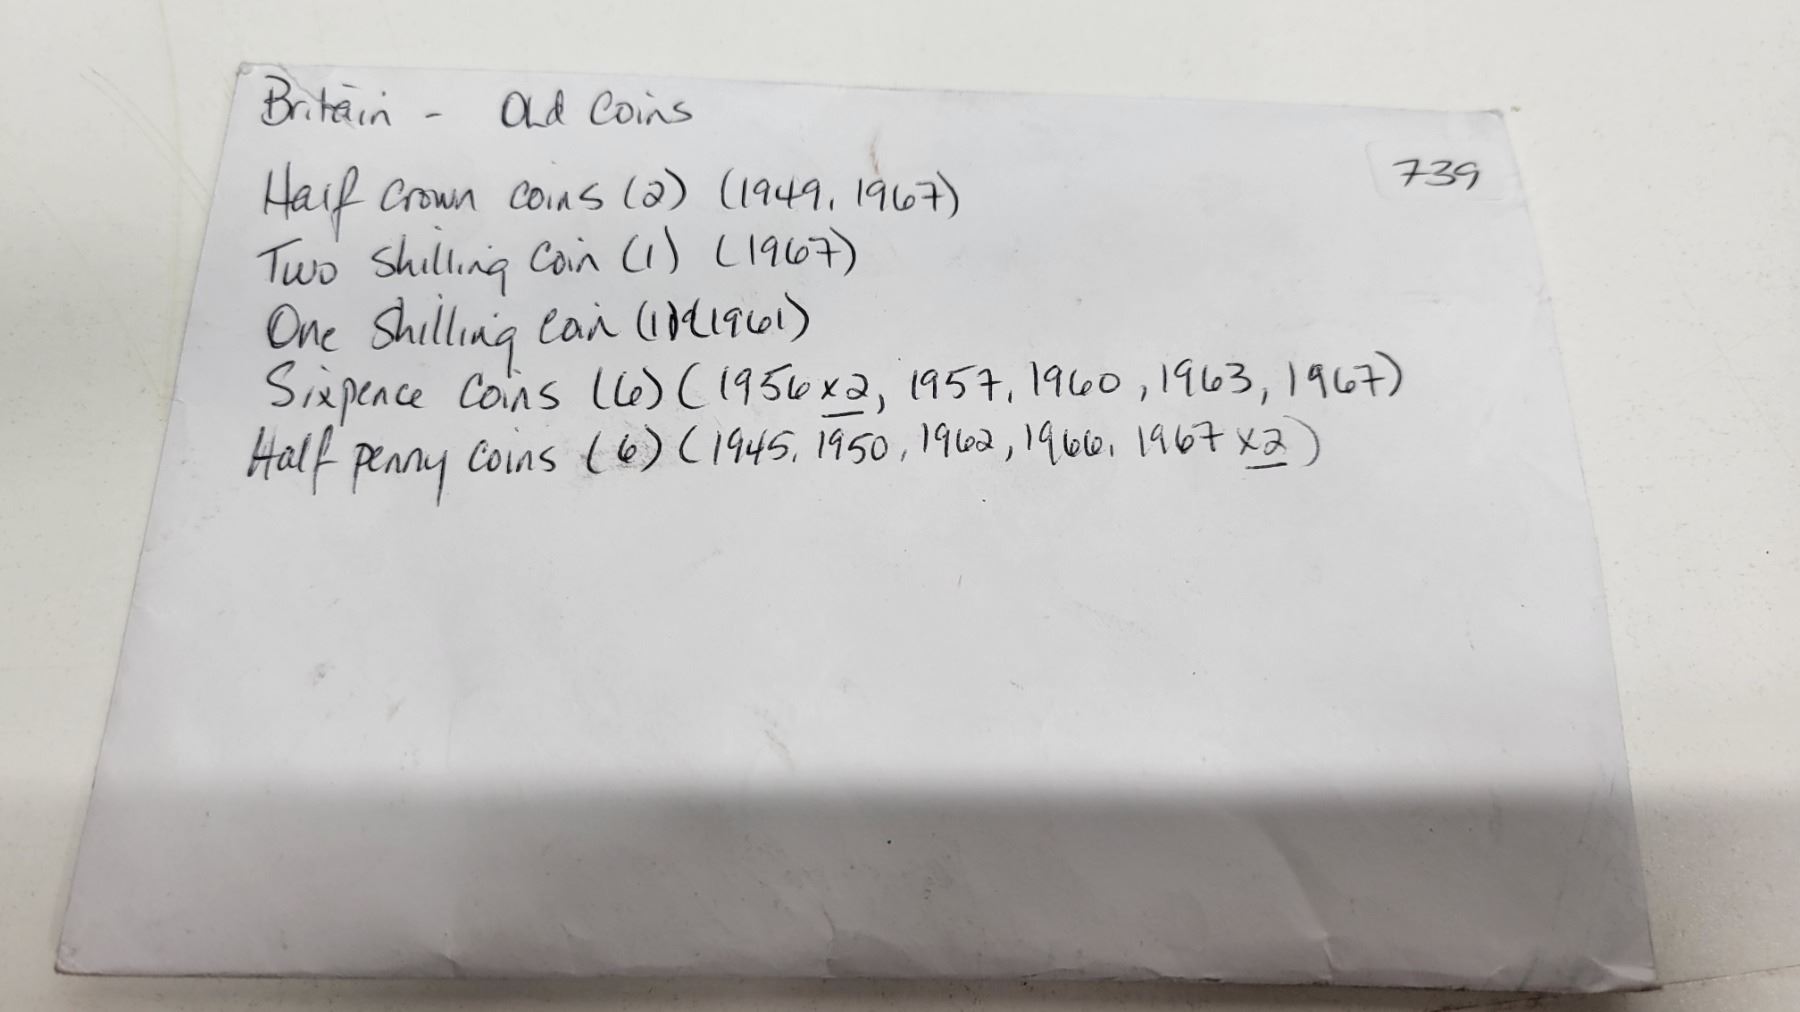 Britain - Old Coins
739
Half Crown coins (2) (1949, 1967)
Two Shilling Coin (1) (1967)
One Shilling Coin (1) (1961)
Sixpence Coins (6) (1956 x2, 1957, 1960, 1963, 1967)
Half penny Coins (6) (1945, 1950, 1962, 1966, 1967 x2)